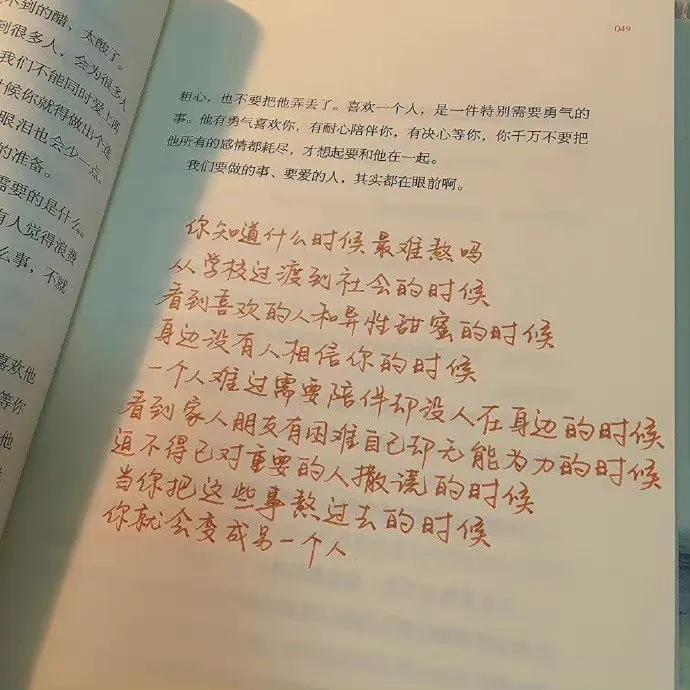 不到的醋，太酸了。
到很多人，会为很多人
我们不能同时爱上两
候你就得做出个选
眼泪也会少一点。
的准备。
需要的是什么。
有人觉得浪费
么事，不就
喜欢他
等你
他
他
049
粗心，也不要把他弄丢了。喜欢一个人，是一件特别需要勇气的
事。他有勇气喜欢你，有耐心陪伴你，有决心等你，你千万不要把
他所有的感情都耗尽，才想起要和他在一起。
我们要做的事、要爱的人，其实都在眼前啊。
你知道什么时候最难熬吗
从学校过渡到社会的时候
看到喜欢的人和异性甜蜜的时候
身边没有人相信你的时候
一个人难过需要陪伴却没人在身边的时候
看到家人朋友有困难自己却无能为力的时候
迫不得已对重要的人撒谎的时候
当你把这些事熬过去的时候
你就会变成另一个人